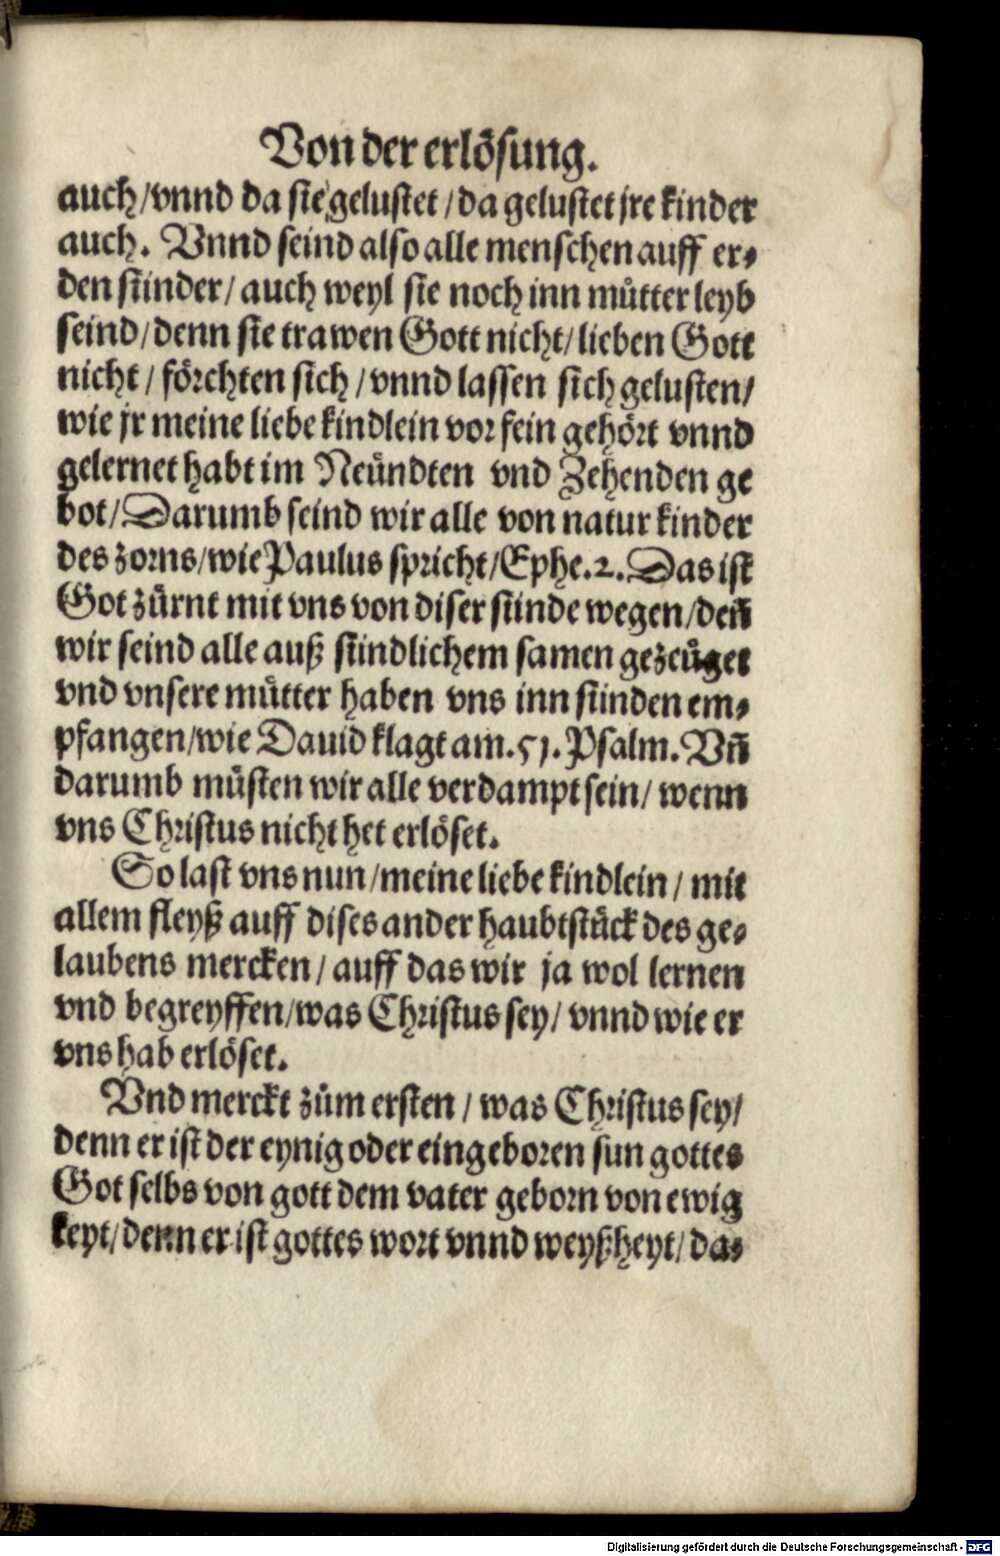 Von der erlösung.
auch/vnnd da sie gelustet/da gelustet jre kinder
auch. Vnnd seind also alle menschen auff er⸗
den sünder/auch weyl sie noch inn můtter leyb
seind/denn sie trawen Gott nicht/lieben Gott
nicht/förchten sich/vnnd lassen sich gelusten/
wie jr meine liebe kindlein vor fein gehört vnnd
gelernet habt im Neündten vnd Zehenden ge
bot/Darumb seind wir alle von natur kinder
des zorns/wie Paulus spricht/Ephe.2. Das ist
Got zürnt mit vns von diser sünde wegen/deñ
wir seind alle auß sündlichem samen gezeüget
vnd vnsere mütter haben vns inn sünden em⸗
pfangen/wie Dauid klagt am.51.Psalm. Vñ
darumb müsten wir alle verdampt sein/wenn
vns Christus nicht het erlöset.
So last vns nun/meine liebe kindlein/mit
allem fleyß auff dises ander haubtstück des ge⸗
laubens mercken/auff das wir ja wol lernen
vnd begreyffen/was Christus sey/vnnd wie er
vns hab erlöset.
Vnd merckt zům ersten/was Christus sey/
denn er ist der eynig oder eingeboren sun gottes
Got selbs von gott dem vater geborn von ewig
keyt/denn er ist gottes wort vnnd weyßheyt/da⸗
Digitalisierung gefördert durch die Deutsche Forschungsgemeinschaft - DFG